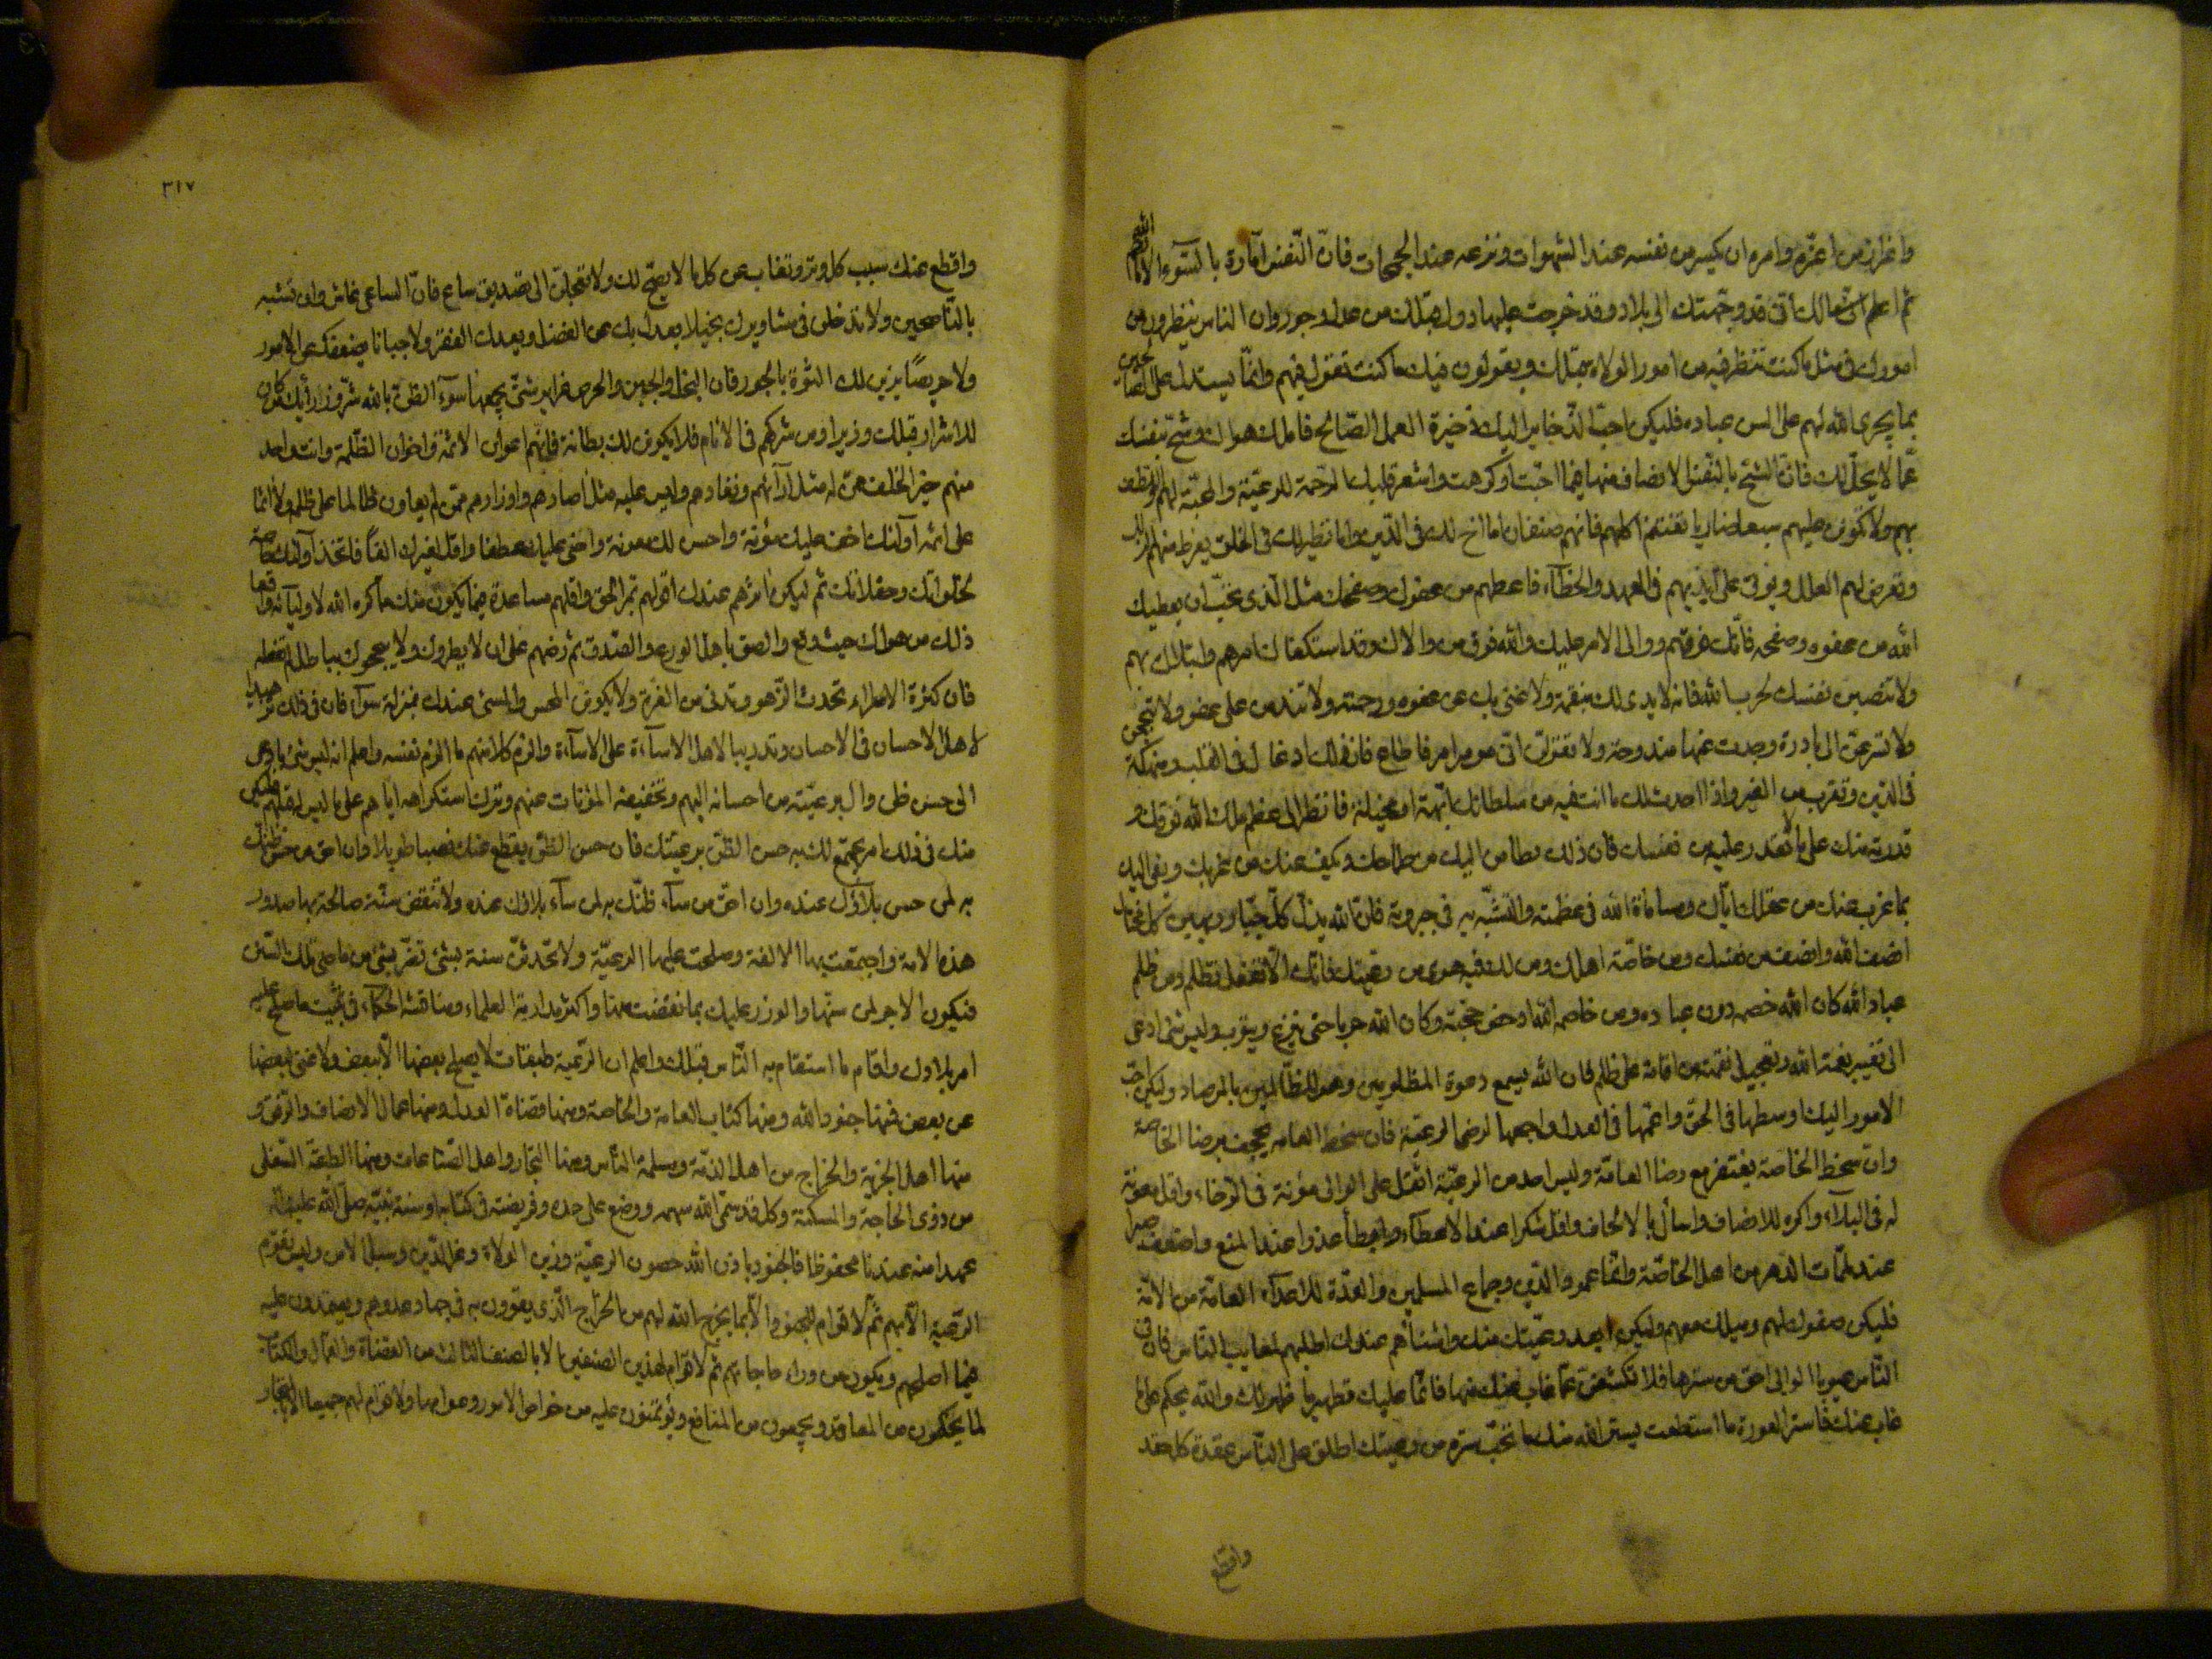 واعزاز من اعزّه وامره ان يكسر من نفسه عند الشهوات ونزعه عند الجمحات فانّ النّفس امّارة بالسّوء الا ما رحم الله
ثم اعلم يا مالك انّى قد وجّهتك الى بلاد وقد خرجت عليها دول قبلك من عدل وجور وان الناس ينظرون من
امورك فى مثل ما كنت تنظر فيه من امور الولاة قبلك ويقولون فيك ما كنت تقول فيهم وانّما يستدل على الصالحين
بما يجرى الله لهم على السن عباده فليكن احبّ الذّخاير اليك ذخيرة العمل الصّالح فاملك هواك وشحّ بنفسك
عمّا لا يحلّ لك فانّ الشّح بالنّفس الانصاف منها فيما احبّت او كرهت واشعر قلبك الرّحمة للرعيّة والمحبّة لهم واللّطف
بهم ولا تكونن عليهم سبعا ضاريا تغتنم اكلهم فانهم صنفان اما اخ لك فى الدّين واما نظير لك فى الخلق يفرط منهم الزلل
وتعرض لهم العلل ويؤتى على ايديهم فى العمد والخطاء فاعطهم من عفوك وصفحك مثل الّذى تحبّ ان يعطيك
الله من عفوه وصفحه فانّك فوقهم ووالى الامر عليك والله فوق من ولّاك وقد استكفاك امرهم وابتلاك بهم
ولا تنصبن نفسك لحرب الله فانه لا يدى لك بنقمته ولا غنى بك عن عفوه ورحمته ولا تندمن على عفو ولا تبجحن
ولا تسرعنّ الى بادرة وجدت عنها مندوحة ولا تقولنّ انّى مؤمر آمر فاطاع فان ذلك ادغال فى القلب ومنهكة
فى الدّين وتقرب من الغير واذا احدث لك ما انت فيه من سلطانك ابّهة او مخيلة فانظر الى عظم ملك الله فوقك و
قدرته منك على ما لا تقدر عليه من نفسك فان ذلك يطامن اليك من طماحك ويكف عنك من غربك ويفئ اليك
بما عزب عنك من عقلك ايّاك ومساماة الله فى عظمته والتشبّه به فى جبروته فان الله يذلّ كلّ جبّار ويهين كل مختال
انصف الله وانصف من نفسك ومن خاصّة اهلك ومن لك فيه هوى من رعيتك فانّك الّا تفعل تظلم ومن ظلم
عباد الله كان الله خصمه دون عباده ومن خاصمه الله ادحض حجته وكان الله حربا حتى ينزع ويتوب وليس شئ ادعى
الى تغيير نعمة الله وتعجيل نقمته من اقامة على ظلم فان الله يسمع دعوة المظلومين وهو للظّالمين بالمرصاد وليكن احبّ
الامور اليك اوسطها فى الحقّ واعمّها فى العدل واجمعها لرضى الرعيّة فان سخط العامه يجحف برضا الخاصة
وانّ سخط الخاصّة يغتفر مع رضا العامّة وليس احد من الرعيّة اثقل على الوالى مؤنة فى الرّخاء واقل معونة
له فى البلاء واكره للانصاف واسأل بالالحاف واقل شكرا عند الاعطاء وابطأ عذرا عند المنع واضعف صبرا
عند ملمّات الدهر من اهل الخاصّة وانّما عمود الدّين وجماع المسلمين والعدّة للاعداء العامّة من الامّة
فليكن صغوك لهم وميلك معهم وليكن ابعد رعيّتك منك واشنأهم عندك اطلبهم لمعايب النّاس فان فى
النّاس عيوبا الوالى احق من سترها فلا تكشفن عمّا غاب عنك منها فانّما عليك تطهير ما ظهر لك والله يحكم على ما
غاب عنك فاستر العورة ما استطعت يستر الله منك ما تحبّ ستره من رعيتك اطلق على النّاس عقدة كل حقد
واقطع
٣١٧
واقطع عنك سبب كل وتر وتغاب عن كل ما لا يصحّ لك ولا تعجلنّ الى تصديق ساع فانّ الساعى غاش وان تشبه
بالنّاصحين ولا تدخلن فى مشاورتك بخيلا يعدل بك عن الفضل ويعدك الفقر ولا جبانا يضعفك عن الامور
ولا حريصًا يزين لك الشّره بالجور فان البخل والجبن والحرص غرايز شتّى يجمعها سوء الظن بالله شرّ وزرائك من كان
للاشرار قبلك وزيرا ومن شركهم فى الاثام فلا يكونن لك بطانة فانّهم اعوان الاثمة واخوان الظّلمة وانت واجد
منهم خير الخلف ممّن له مثل آرائهم ونفاذهم وليس عليه مثل آصارهم واوزارهم ممّن لم يعاون ظالما على ظلمه ولا آثما
على اثمه اولئك اخف عليك مؤنة واحسن لك معونة واحنى عليك عطفا واقل لغيرك الفًا فاتخذ اولئك خاصة
لخلواتك وحفلاتك ثم ليكن آثرهم عندك اقولهم بمرّ الحق واقلهم مساعدة فيما يكون منك مما كره الله لاوليائه واقعا
ذلك من هواك حيث وقع والصق باهل الورع والصّدق ثم رضهم على ان لا يطروك ولا يبجحوك بباطل لم تفعله
فان كثرة الاطراء تحدث الزّهو وتدنى من الغرة ولا يكونن المحسن والمسئ عندك بمنزلة سواء فان فى ذلك تزهيدا
لاهل الاحسان فى الاحسان وتدريبا لاهل الاساءة على الاساءة والزم كلا منهم ما الزم نفسه واعلم انه ليس شئ بادعى
الى حسن ظن وال برعيّته من احسانه اليهم وتخفيفه المؤنات عنهم وترك استكراهه اياهم على ما ليس له قبلهم فليكن
منك فى ذلك امر يجتمع لك به حسن الظنّ برعيتك فان حسن الظن يقطع عنك نصبا طويلا وان احق من حسن ظنك
به لمن حسن بلاؤك عنده وان احق من ساء ظنّك به لمن ساء بلاؤك عنده ولا تنقض سنّة صالحة بها صدور
هذه الامة واجتمعت بها الالفة وصلحت عليها الرعيّة ولا تحدثنّ سنة بشئ تضر بشئ من ماضى تلك السّنن
فيكون الاجر لمن سنّها والوزر عليك بما نقضت منها واكثر مدارسة العلماء ومناقشة الحكماء فى تثبيت ما صلح عليه
امر بلادك واقامة ما استقام به النّاس قبلك واعلم ان الرّعية طبقات لا يصلح بعضها الّا ببعض ولا غنى ببعضها
عن بعض فمنها جنود الله ومنها كتاب العامة والخاصة ومنها قضاة العدل ومنها عمال الانصاف والرّفق و
منها اهل الجزية والخراج من اهل الذمّة ومسلمة النّاس ومنها التجّار واهل الصّناعات ومنها الطبقة السّفلى
من ذوى الحاجة والمسكنة وكل قد سمّى الله سهمه ووضع على حده وفريضته فى كتابه او سنة نبيّه صلّى الله عليه وآله
عهدا منه عندنا محفوظا فالجنود باذن الله حصون الرعيّة وزين الولاة وعز الدّين وسبل الامن وليس تقوم
الرّعية الّا بهم ثم لا قوام للجنود الّا بما يخرج الله لهم من الخراج الّذى يقوون به فى جهاد عدوهم ويعتمدون عليه
فيما اصلحهم ويكون من وراء حاجاتهم ثم لا قوام لهذين الصنفين الا بالصنف الثالث من القضاة والعمّال والكتّاب
لما يحكمون من المعاقد ويجمعون من المنافع ويؤتمنون عليه من خواص الامور وعوامها ولا قوام لهم جميعا الا بالتجار